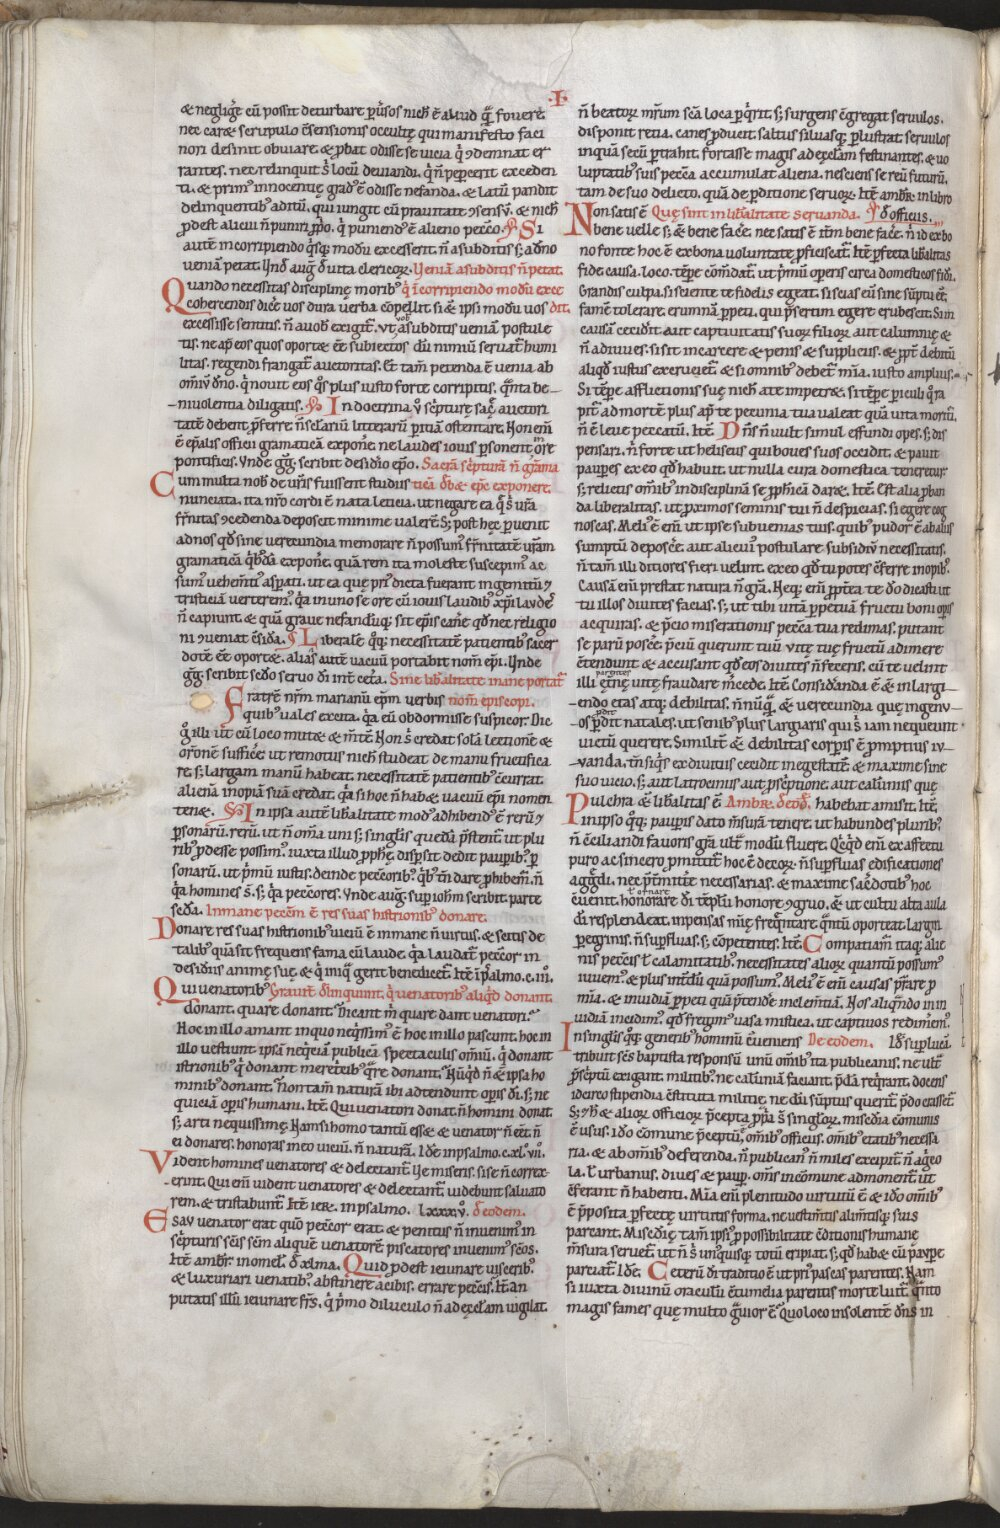 ·I·
& neglig̃e cũ possit deturbare puisos nich̃ ẽ aliud q̃ fouere.
nec car& scrupulo c̃sensionis occultę qui manifesto faci
nori desinit obuiare. & p̱bat odisse se uicia q̇ ɔdemnat er
rantes. nec relinquit s̃ locũ deuiandi. q̇ ñ pepercit exceden
ti. & prim᷒ innocentię grad᷒ ẽ odisse nefanda. & latũ pandit
delinquentib᷒ aditũ. qui iungit cũ prauitate ɔsensũ. & nich̃
p̱dest alicui ñ puniri p̱p̱o. q̇ puniend᷒ ẽ alieno pecc̃o. Si
autẽ in corripiendo q̇sq̨ modũ excesserit. ñ a subditis s; a dño
ueniã petat. Vnd̃ aug̃ d̃ uita clericoꝝ. Veniã a subditis ñ petat.
Quando necessitas disciplinę morib᷒ q̇ ĩ corripiendo modũ exce
cohercendis dic̃e uos dura uerba cõpellit. si & ipsi modũ uos dit.
excessisse sentitis. ñ a uob̃ exigit̃. ut a subditis ueniã postule
tis. ne ap̃ eos quos oport& ẽe subiectos dũ nimiũ seruat̃ humi
litas. regendi frangat̃ auctoritas. Et tam̃ petenda ẽ uenia ab
om̃iũ dño. q̇ nouit eos q̇s plus iusto forte corripitis. q̃nta be-
niuolentia diligatis. In doctrina ũ sc̃pturę sac̃ę auctori
tatẽ debent p̃ferre. ñ sc̃lariũ litterarũ pitiã ostentare. Non em̃
ẽ ep̃alis officii gramaticã expon̄e. ne laudes iouis psonent ore
pontificis. Vnde g̃g̃. scribit desid̃io ep̃o. Sacrã sc̃pturã ñ g̃ma
Cum multa nob̃ de ur̃is fuissent studiis ticã d̃b& ep̃c exponere.
nunciata. ita nr̃o cordi ẽ nata leticia. ut negare ea q̨ s̃ ur̃a
fr̃nitas ɔcedenda deposcit minime ualer& S; post hęc puenit
ad nos qd̃ sine uerecundia memorare ñ possum᷒ fr̃nitatẽ ur̃am
gramaticã q̇b᷒dã expon̄e. quã rem ita moleste suscepim᷒ ac
sum᷒ uehem̃t᷒ asp̱nati. ut ea quę pri᷒ dicta fuerant in gemitũ ɔ
tristiciã uerterem᷒. q̇a in uno se ore cũ iouis laudib᷒ xp̃i laud̃es
ñ capiunt. & quã graue nefandũq̨ sit ep̃is can̄e qd̃ nec religio
ni ɔueniat c̃sid̃a. Liberalẽ q̨q; necessitatẽ patientib᷒ sacer
dotẽ ẽe oport&. alias autẽ uacuũ portabit nom̃ ep̃i. Vnde
g̃g̃. scribit sed̃o seruo d̃i int̃ cet̃a. Sine lib̃alitate inane portat᷒
Fratrẽ nr̃m marianũ ep̃m uerbis nom̃ episcopi.
quib᷒ uales excita. q̇a eũ obdormisse suspicor. Dic
g̃ illi ut cũ loco mut& & m̃tẽ Non s̃ credat solã lectionẽ &
or̃onẽ suffic̃e ut remotus nich̃ studeat de manu fructifica
re. s; largam manũ habeat. necessitatẽ patientib᷒ c̃currat.
alienã inopiã suã credat. q̇a si hoc ñ hab&. uacuũ ep̃i nomen
ten&. In ipsa autẽ lib̃alitate mod᷒ adhibend᷒ ẽ rerũ ɔ
psonarũ. rerũ. ut ñ om̃a uni s; singl̃is quedã p̃stent᷒. ut plu
rib᷒ p̱desse possim᷒. iuxta illud p̱ph̃ę. disp̱sit dedit paupib᷒. p
sonarũ. ut p̃mũ iustis. deinde pecc̃orib᷒. q̇b᷒ tñ dare p̱hibem᷒. ñ
q̇a homines s̃. s; q̇a pecc̃ores. Vnde aug̃. sup ioh̃m scribit. parte
sec̃da. Inmane pecc̃m ẽ res suas histrionib᷒ donare.
Donare res suas histrionib᷒ uiciũ ẽ inmane ñ uirtus. & scitis de
talib᷒ quã sit frequens fama cũ laude. q̇a laudat᷒ pecc̃or in
desid̃iis animę suę. & q̇ iniq̃ gerit benedicet᷒. Itẽ ĩ psalmo. c. iii᷒.
Qui uenatorib᷒ Grauit̃ d̃linquunt. q̇ uenatorib᷒ aliq̇d donant.
donant. quare donant. Dicant m̃ quare dant uenatori.
Hoc in illo amant in quo neq̇ssim᷒ ẽ hoc in illo pascunt. hoc in
illo uestiunt. ipsã neq̇ciã publicã spectaculis om̃iũ. q̇ donant
istrionib᷒ q̇ donant meretcib᷒ q̃re donant. Nũq̇d ñ & ipsa ho
minib᷒ donant. Non tam̃ naturã ibi adtendunt opis d̃i. s; ne
quiciã opis humani. Itẽ. Qui uenatori donat. ñ homini donat.
s; arti nequissimę. Nam si homo tantũ ess& & uenator ñ ẽet. ñ
ei donares. honoras in eo uiciũ. ñ naturã. Id̃e in psalmo. c.xl.vii.
Vident homines uenatores & delectant᷒. Ve miseris. si se ñ correx-
erint. Qui em̃ uident uenatores & delectant᷒. uidebunt saluato
rem. & tristabunt᷒. Itẽ ier̃. in psalmo. lxxxv. d̃ eodem.
Esau uenator erat quo᷒ pecc̃or erat. & penitus ñ inuenim᷒ in
sc̃pturis sc̃is sc̃m aliquẽ uenatorẽ. piscatores inuenim᷒ sc̃os.
Itẽ ambr̃. in omel̃. d̃ xl̃ma. Quid p̱dest ieiunare uiscerib᷒
& luxuriari uenatib᷒. abstin̄ere a cibis. errare pecc̃is. It̃ an
putatis illũ ieiunare fr̃s. q̇ p̃mo diluculo ñ ad ęccl̃am uigilat.
ñ beatoꝝ mr̃um sc̃a loca pq̇rit s; surgens c̃gregat seruulos.
disponit retia. canes p̱ducit. saltus siluasq̨ plustrat. seruulos
inquã secũ ptrahit. fortasse magis ad ęccl̃am festinantes. & uo
luptatib᷒ suis pecc̃a accumulat aliena. nesciens se reũ futurũ.
tam de suo delicto. quã de pditione seruoꝝ. Itẽ ambr̃. in libro
Non satis ẽ Quę sint in lib̃alitate seruanda. p̃ d̃ officiis.
bene uelle s; & bene fac̃e. nec satis ẽ it̃m bene fac̃e. ñ id ex bo
no fonte hoc ẽ ex bona uoluntate p̱ficiscat᷒. Itẽ pfecta lib̃alitas
fide. causa. loco. tẽpe cõm̃dat᷒. ut p̃mũ operis circa domesticos fid̃i.
Grandis culpa. si sciente te fidelis egeat. si scias eũ sine sũptu ẽe.
famẽ tolerare. erumnã ppeti. qui p̃sertim egere erubescit. Si in
causã cecidit aut captiuitatis suorũ filioꝝ aut calumnię &
ñ adiuues. si sit in carcere & penis & suppliciis. & p̱pt̃ debitũ
aliqd̃ iustus excruciet᷒ & si omnib᷒ debet᷒ mĩa. iusto amplius.
Si tẽpe afflictionis suę nich̃ a te impetr& . si tẽpe piculi q̇ ra
pit᷒ ad mortẽ plus ap̃ te pecunia tua ualeat quã uita moritũ.
ñ ẽ leue peccatũ. Itẽ. Dñs ñ uult simul effundi opes. s; dis
pensari. ñ forte ut heliseus qui boues suos occidit. & pauit
paupes ex eo qd̃ habuit. ut nulla cura domestica teneret᷒.
s; relictis om̃ib᷒ in disciplinã se p̱ph̃icã dar&. Itẽ. Est alia p̱ban
da liberalitas. ut p̱ximos seminis tui ñ despicias. si egere cog
noscas. Meli᷒ ẽ em̃ ut ipse subuenias tuis. quib᷒ pudor ẽ ab aliis
sumptũ deposc̃e. aut alicui᷒ postulare subsidiũ necessitatis.
ñ tam̃ illi ditiores fieri uelint. ex eo qd̃ tu potes c̃ferre inopib᷒.
Causã em̃ prestat natura ñ grã. Neq̨ em̃ p̱pt̃ea te d̃o dicasti ut
tu illos diuites facias. s; ut tibi uitã ppetuã fructu boni opis
acquiras. & p̃cio miserationis pecc̃a tua redimas. putant
se parũ posc̃e. p̃ciũ querunt tuũ uitę tuę fructũ adimere
c̃tendunt & accusant qd̃ eos diuites ñ feceris. cũ te uelint
illi ęt̃nę uitę fraudare m̃cede. Itẽ. Consid̃anda ẽ & in largi-
-endo ętas atq; debilitas. ñ nũq̃. & uerecundia quę ingenu-
os p̱dit natales. ut senib᷒ plus largiaris qui s̃ iam nequeunt
uictũ querere. Similit̃ & debilitas corpis ẽ promptius iu-
uanda. tñ siq̇s ex diuitiis cecidit in egestatẽ. & maxime sine
suo uicio. s; aut latrociniis aut p̱sc̃ptione. aut calũniis quę
Pulchra & lib̃alitas ẽ Ambr̃. d̃ eod̃. habebat amisit. Itẽ.
in ipso q̨q; paupis dato m̃surã tenere. ut habundes plurib᷒.
ñ c̃ciliandi fauoris gr̃a ult᷒ modũ fluere. Qc̃qd̃ em̃ ex affectu
puro ac sincero p̱mittit᷒. hoc ẽ decoꝝ. ñ supfluas edificationes
agg̃di. nec p̃t̃mitt̃e necessarias. & maxime sac̃dotib᷒ hoc
c̃uenit. honorare d̃i tẽplũ honore ɔgruo. & ut cultu alta aula
d̃i resplendeat. inpensas mĩę freq̃ntare. q̃ntũ oporteat. largiri
pegrinis. ñ supfluas. s; cõpetentes. Itẽ. Compatiam᷒ itaq; alie
nis pecc̃is ł calamitatib᷒. necessitates alioꝝ quantũ possum᷒
iuuem᷒. & plus int̃dũ quã possum᷒. Meli᷒ ẽ em̃ causas p̃stare p
mĩa. & inuidiã ppeti quã p̃tende inclem̃tiã. Nos aliq̃ndo in in
uidiã incidim᷒. qd̃ freg̃im᷒ uasa mistica. ut captiuos redim̃em᷒.
In singl̃is q̨q; generib᷒ hominũ c̃ueniens De eodem. Id̃ sup lucã.
tribuit sc̃s baptista responsũ unũ om̃ib᷒ ita publicanis. ne ult᷒
p̃sc̃ptũ exigant. militib᷒. ne calũniã faciant. p̃dã req̇rant. docens
idcirco stipendia c̃stituta militię. ne dũ sũptus querit᷒. p̃do c̃rasset᷒.
S; ɔ h̃ & alioꝝ officioꝝ p̃cepta p̱pa s̃ singl̃oꝝ. misc̃dia cõmunis
ẽ usus. id̃o cõmune p̃ceptũ. om̃ib᷒ officiis. om̃ib᷒ etatib᷒ necessa
ria. & ab omib᷒ deferenda. ñ publican᷒ ñ miles excipit᷒. ñ ag̃co
la. ł urbanus. diues & paup. om̃s in cõmune admonent᷒. ut
c̃ferant ñ habenti. Mĩa em̃ plenitudo uirtutũ ẽ & id̃o om̃ib᷒
ẽ p̱posita pfectę uirtutis forma. ne uestim̃tis alim̃tisq; suis
parcant. Misc̃dię tam̃ ipsi᷒ p possibilitate c̃ditionis humanę
m̃sura seruet᷒. ut ñ s̃ unusquisq; totũ eripiat. s; qd̃ hab& cũ paupe
parciat᷒. Id̃e. Ceterũ d̃i traditio ẽ ut pri᷒ pascas parentes. Nam
si iuxta diuinũ oraculũ c̃tumelia parentis morte luit᷒. q̃nto
magis fames quę multo g̃uior ẽ. Quo loco insolentẽ dñs in